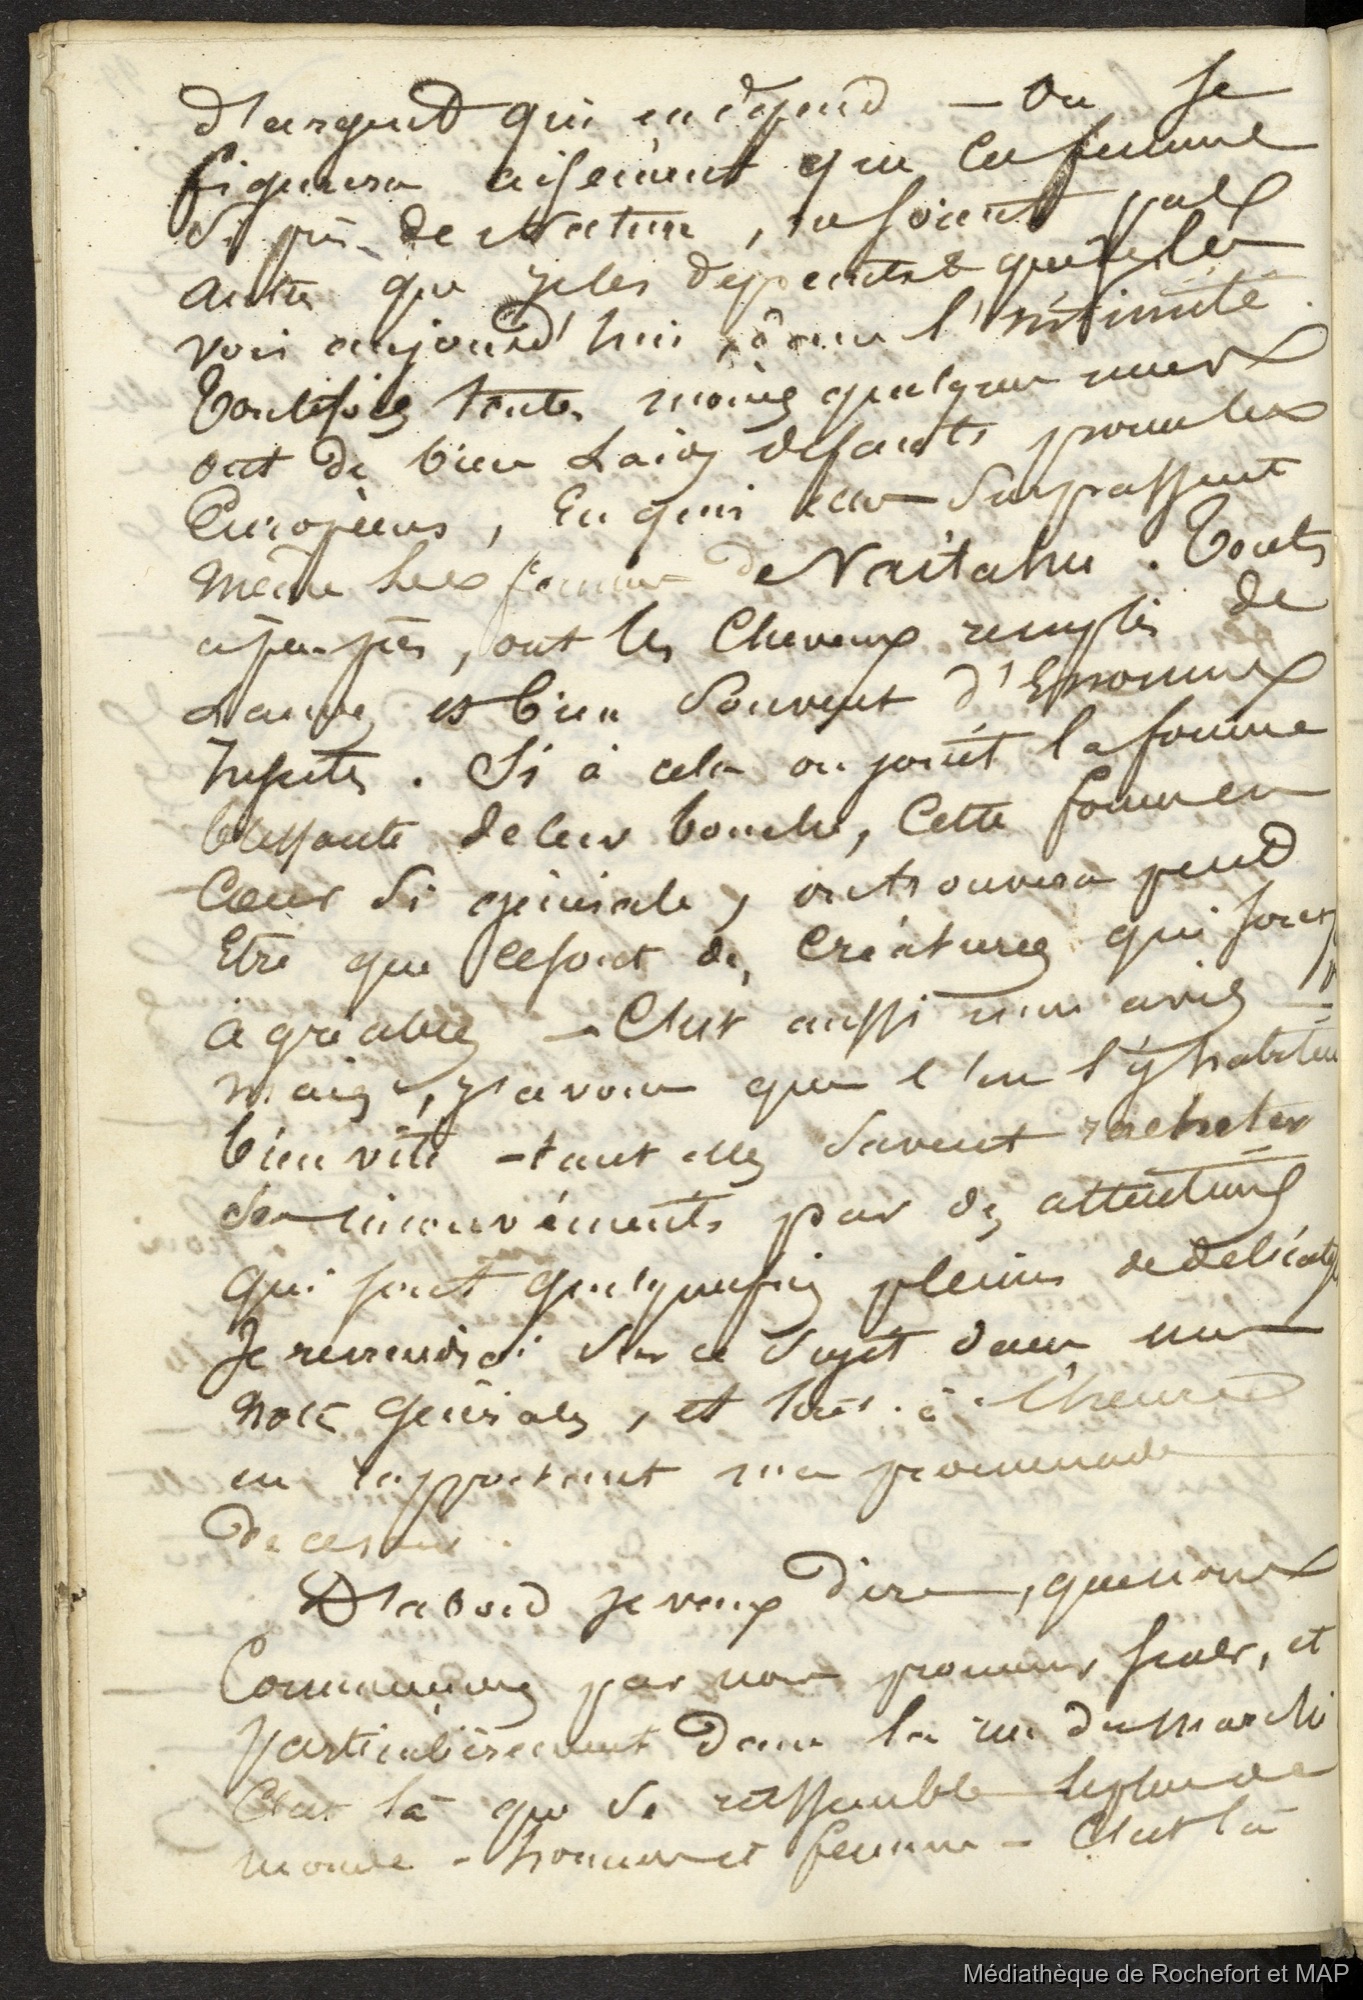 d'argent qui en dépend — On se
figurera aisément que les femmes
si près de Nature, ne soient pas
autres que je les dépeints & que je les
vois aujourd'hui, dans l'intimité.
Toutefois toutes moins quelques unes
ont de bien Laids défauts pour les
Européens, En quoi elles surpassent
même les femmes de Vaitahu. Toutes
à peu près, ont les Cheveux remplis de
et bien souvent d'Enormes
Insectes. Si à cela on joint la forme
de leur bouche, Cette forme en
Cœur si générale, on trouvera peut
Etre que ce sont des Créatures qui sont
agréables — C'est aussi mon avis —
Mais, j'avoue que l'on s'y habitue
bien vite — tant elles savent racheter
ces inconvéments par des attentions
qui sont quelquefois pleines de délicat
Je reviendrai sur ce sujet dans une
note générale, et tout à l'heure
en rapportant ma promenade
de ce soir.
D'abord je veux dire, que nous
Commençons par nous promener seuls, et
particulièrement dans la rue du Marché
C'est là que se rassemble le plus de
monde — hommes et femmes — C'est là
Médiathèque de Rochefort et MAP